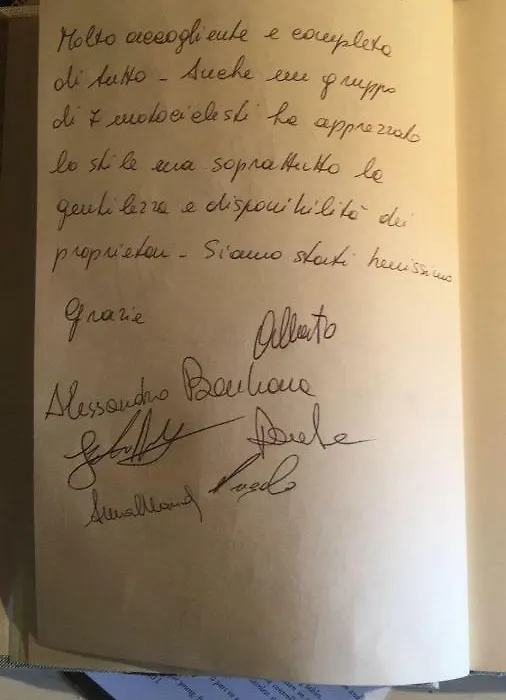 Molto accogliente e completo
di tutto - Anche un gruppo
di 7 motociclisti ha apprezzato
lo stile ma soprattutto la
gentilezza e disponibilità dei
proprietari - Siamo stati benissimo
Grazie
Alberto
Alessandro